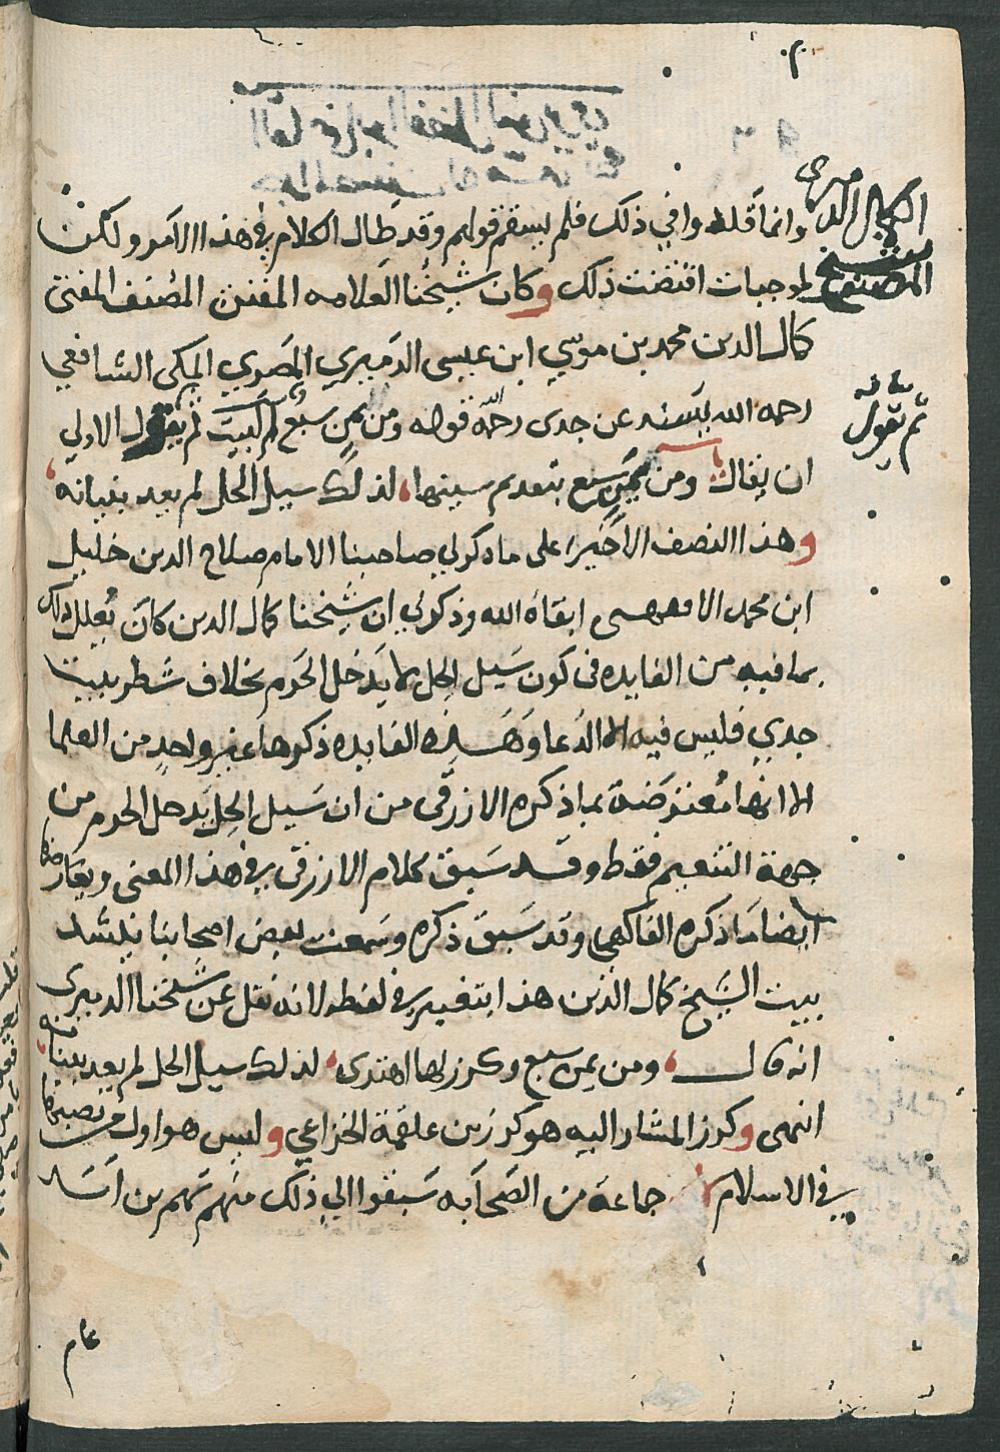 الكمال الدميري
المصنف
وانما قلدوا في ذلك فلم يستقم قولهم وقد طال الكلام في هذا الامر ولكن
لموجبات اقتضت ذلك وكان شيخنا العلامه المفنن المصنف المفتى
كمال الدين محمد بن موسي ابن عيسى الدميري المصري المكى الشافعي
رحمه الله ينشد عن جدى رحمه الله قوله ومن يمن سبع ثم يقول الاولي
ثم يقول
ان يقال ومن يمن سبع بتقديم سينها لذلك سيل الحل لم يعد بنيانه
وهذا النصف الاخير على ما ذكر لي صاحبنا الامام صلاح الدين خليل
ابن محمد الاقفهسى ابقاه الله وذكر لي ان شيخنا كمال الدين كان يعلل ذلك
بما فيه من الفايده في كون سيل الحل لا يدخل الحرم بخلاف شطر بيت
جدي فليس فيه الا الدعا وهذه الفايده ذكرها غير واحد من العلما
الا انها معترضة بما ذكره الازرقى من ان سيل الحل يدخل الحرم من
جهة التنعيم فقط وقد سبق كلام الازرقى في هذا المعنى ويعارضها
ايضا ما ذكره الفاكهي وقد سبق ذكره وسمعت بعض اصحابنا ينشد
بيت الشيخ كمال الدين هذا بتغيير في لفظه لانه نقل عن شيخنا الدميرى
انه قال ومن يمن سبع وكرز لها اهتدى لذلك سيل الحل لم يعد بنيانه
انتهى وكرز المشار اليه هو كرز بن علقمة الخزاعي وليس هو اول من نصبها
في الاسلام جماعة من الصحابه سبقوا الي ذلك منهم تميم بن اسد
عام